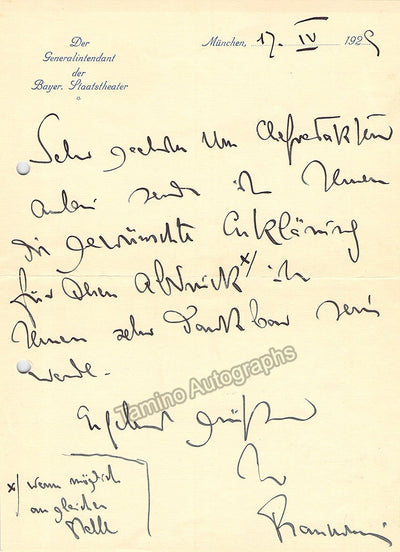 Der
Generalintendant
der
Bayer. Staatstheater
München, 17. IV 1925
Sehr geehrter Herr Chefredakteur
anbei sende ich Ihnen
die gewünschte Erklärung
für deren Abdruck x/ ich
Ihnen sehr dankbar sein
werde.
Ergebenst grüßend
Ihr
x/ wenn möglich
an gleicher
Stelle
Tamino Autographs